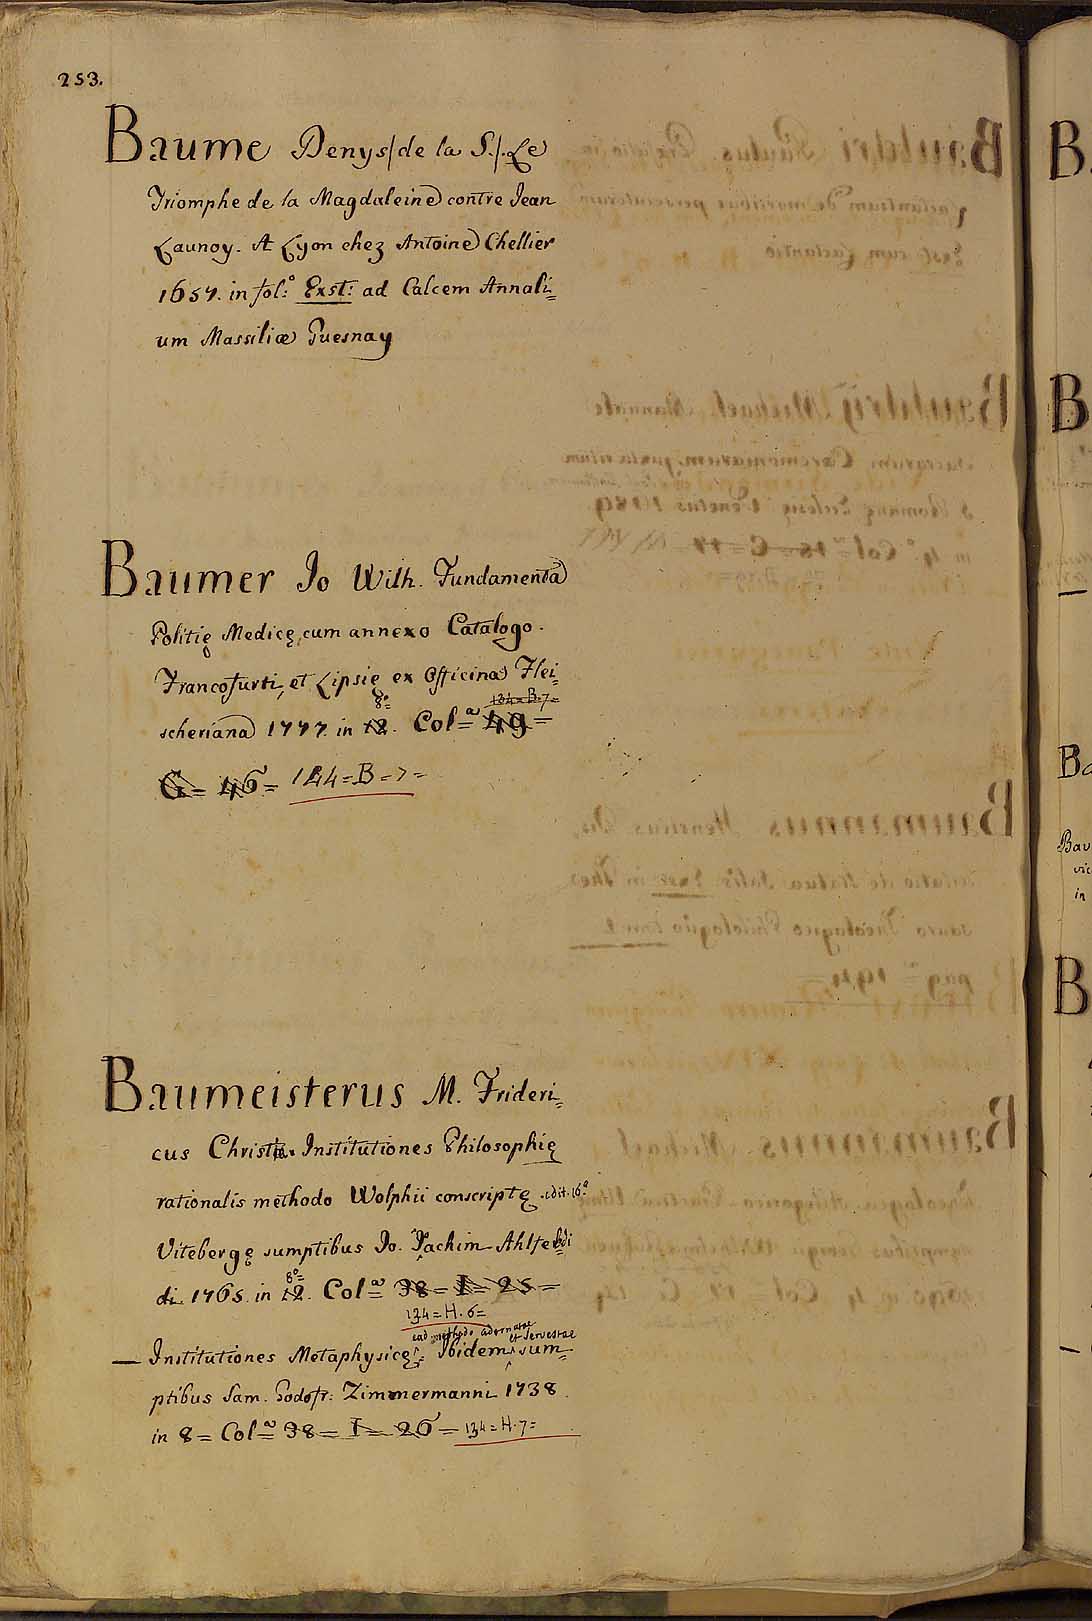 253.
Baume Denys/de la S./. Le
Triomphe de la Magdaleine contre Jean
Launoy. A Lyon chez Antoine Chellier
1657. in fol.º Exst: ad Calcem Annali=
um Massiliæ Guesnay
Baumer Jo Wilh. Fundamenta
Politię Medicę cum annexo Catalogo.
Francofurti, et Lipsię ex Officina Flei=
134=B.7=
8º=
scheriana 1777. in 12. Colª= 49=
G= 46= 124=B=7=
Baumeisterus M. Frideri=
cus Christ. Institutiones Philosophię
rationalis methodo Wolphii conscriptę. edit. 16ª
Vitebergę sumptibus Jo. Joachim Ahlfe
8º=
di 1765. in 12. Colª= 38=I=25=
134=H.6=
ead methodo adornatae
et Servestae
— Institutiones Metaphysicę: Ibidem sum=
ptibus Sam. Godofr: Zimmermanni 1738.
in 8= Colª= 38= I= 26= 134=H.7=